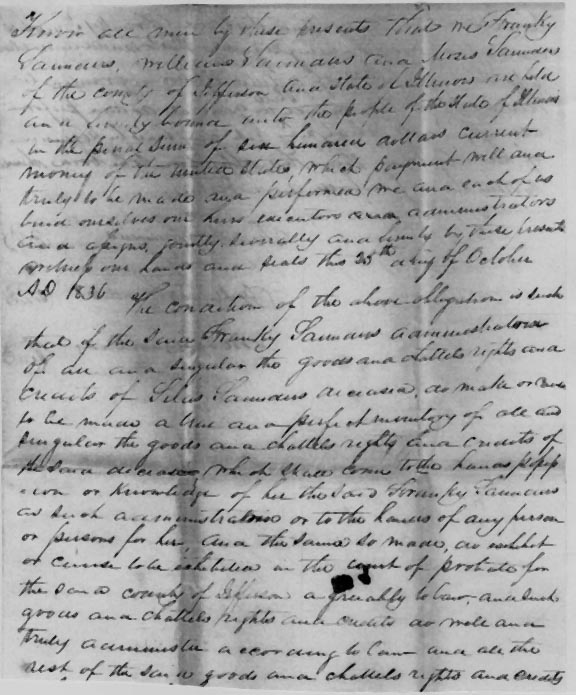 Know all men by these presents that we Franky
Saunders, William Saunders and Moses Saunders
of the county of Jefferson and State of Illinois are held
and firmly bound unto the people of the State of Illinois
in the penal sum of six hundred dollars current
money of the United States, which payment well and
truly to be made and performed we and each of us
bind ourselves our heirs executors and administrators
and assigns, jointly, severally and firmly by these presents
our hands and seals this 25th day of October
AD 1836 The condition of the above obligation is such
that if the said Franky Saunders administratrix
of all and singular the goods and chattels rights and
credits of Silas Saunders deceased, do make or cause
to be made a true and perfect inventory of all and
singular the goods and chattels rights and credits of
the said deceased which shall come to the hands possess
ion or knowledge of her the said Franky Saunders
as such administratrix or to the hands of any person
or persons for her, and the same so made, do exhibit
or cause to be exhibited in the court of probate for
the said county of Jefferson agreeably to law, and such
goods and chattels rights and credits do well and
truly administer according to law and all the
rest of the said goods and chattels rights and credits